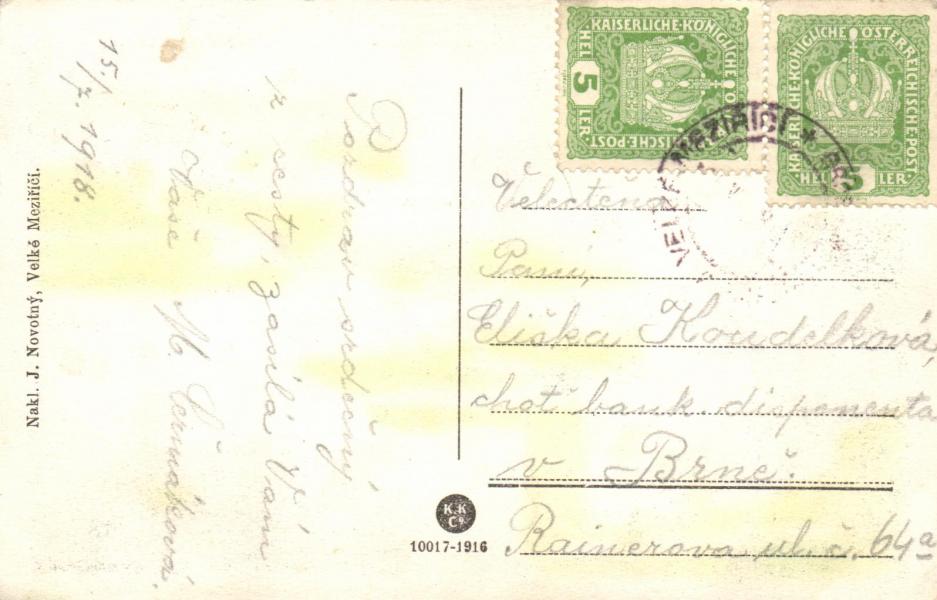 15./7. 1918.
Pozdrav srdečný
z cesty, zasílá Vám
Vaše M. Čermáková.
Nakl. J. Novotný, Velké Meziříčí.
KAISERLICHE·KÖNIGLICHE
POST
5
HELLER
KAISERLICHE·KÖNIGLICHE ÖSTERREICHISCHE·POST
5
HELLER
MEZIŘÍČÍ
Velectěná
Paní,
Eliška Koudelková,
choť bank. disponenta
v Brně.
Rainerova ul. č. 64a
K.K.
Co
10017-1916